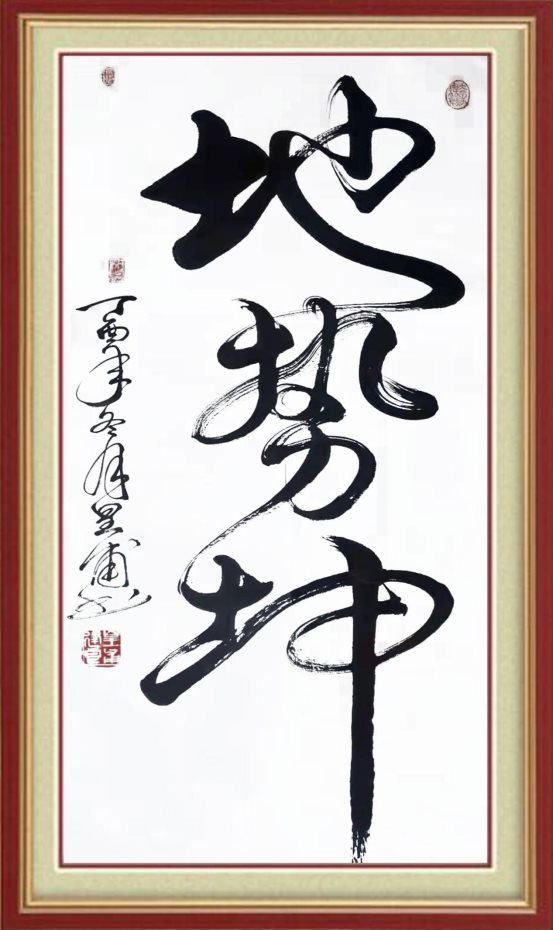 地势坤
丁酉年冬月呈甫书